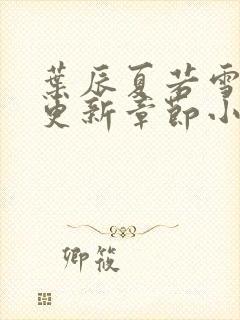 葉辰夏若雪
更新章節小
卿筱